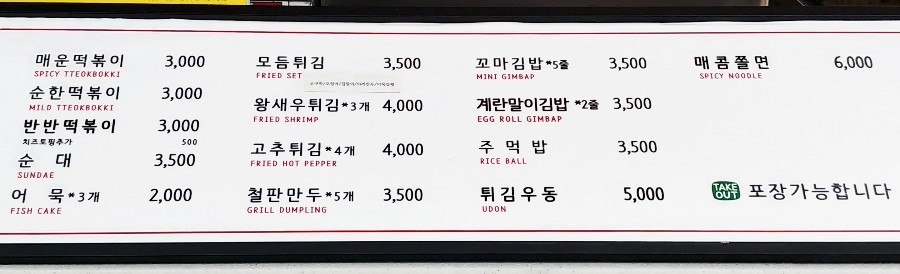 매운떡볶이 3,000
SPICY TTEOKBOKKI
순한떡볶이 3,000
MILD TTEOKBOKKI
반반떡볶이 3,000
치즈토핑추가 500
순 대 3,500
SUNDAE
어 묵*3개 2,000
FISH CAKE
모듬튀김 3,500
FRIED SET
왕새우튀김*3개 4,000
FRIED SHRIMP
고추튀김*4개 4,000
FRIED HOT PEPPER
철판만두*5개 3,500
GRILL DUMPLING
꼬마김밥*5줄 3,500
MINI GIMBAP
계란말이김밥 *2줄 3,500
EGG ROLL GIMBAP
주 먹 밥 3,500
RICE BALL
튀김우동 5,000
UDON
매콤쫄면 6,000
SPICY NOODLE
TAKE OUT 포장가능합니다